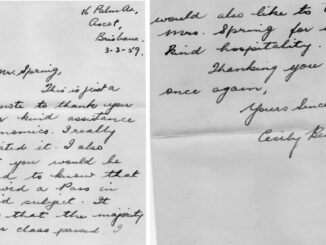 16 Palm Av.,
Ascot,
Brisbane.
3-3-59.
Mr. Spring,
This is just a
note to thank you
kind assistance
onomics. I really
ted it. I also
you would be
d to know that
ved a Pass in
subject. It
s that the majority
class passed. I
would also like to
Mrs. Spring for
kind hospitality.
Thanking you
once again,
Yours Sinc
Cecily